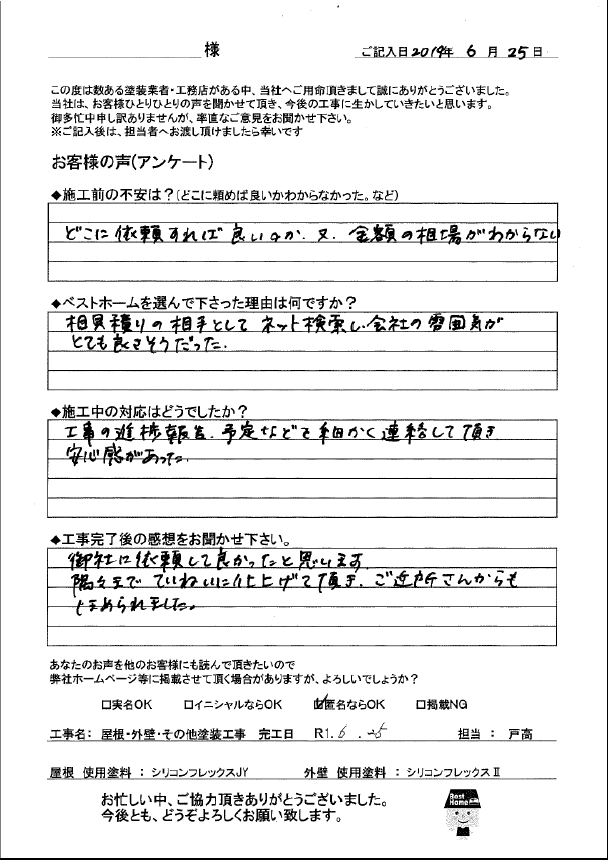 様 ご記入日 2019年 6月 25日
この度は数ある塗装業者・工務店がある中、当社へご用命頂きまして誠にありがとうございました。
当社は、お客様ひとりひとりの声を聞かせて頂き、今後の工事に生かしていきたいと思います。
御多忙中申し訳ありませんが、率直なご意見をお聞かせ下さい。
※ご記入後は、担当者へお渡し頂けましたら幸いです
お客様の声(アンケート)
◆施工前の不安は?(どこに頼めば良いかわからなかった。など)
どこに依頼すれば良いのか、又、金額の相場がわからない
◆ベストホームを選んで下さった理由は何ですか?
相見積りの相手として ネット検索し、会社の雰囲気が
とても良さそうだった。
◆施工中の対応はどうでしたか?
工事の進捗報告、予定などを細かく連絡して頂き
安心感があった。
◆工事完了後の感想をお聞かせ下さい。
御社に依頼して良かったと思います。
隅々まで ていねいに仕上げて頂き、ご近所さんからも
ほめられました。
あなたのお声を他のお客様にも読んで頂きたいので
弊社ホームページ等に掲載させて頂く場合がありますが、よろしいでしょうか?
□実名OK □イニシャルならOK ☑匿名ならOK □掲載NG
工事名: 屋根・外壁・その他塗装工事 完工日 R1.6.25 担当: 戸高
屋根 使用塗料:シリコンフレックスJY 外壁 使用塗料:シリコンフレックスⅡ
お忙しい中、ご協力頂きありがとうございました。
今後とも、どうぞよろしくお願い致します。
Best
Home